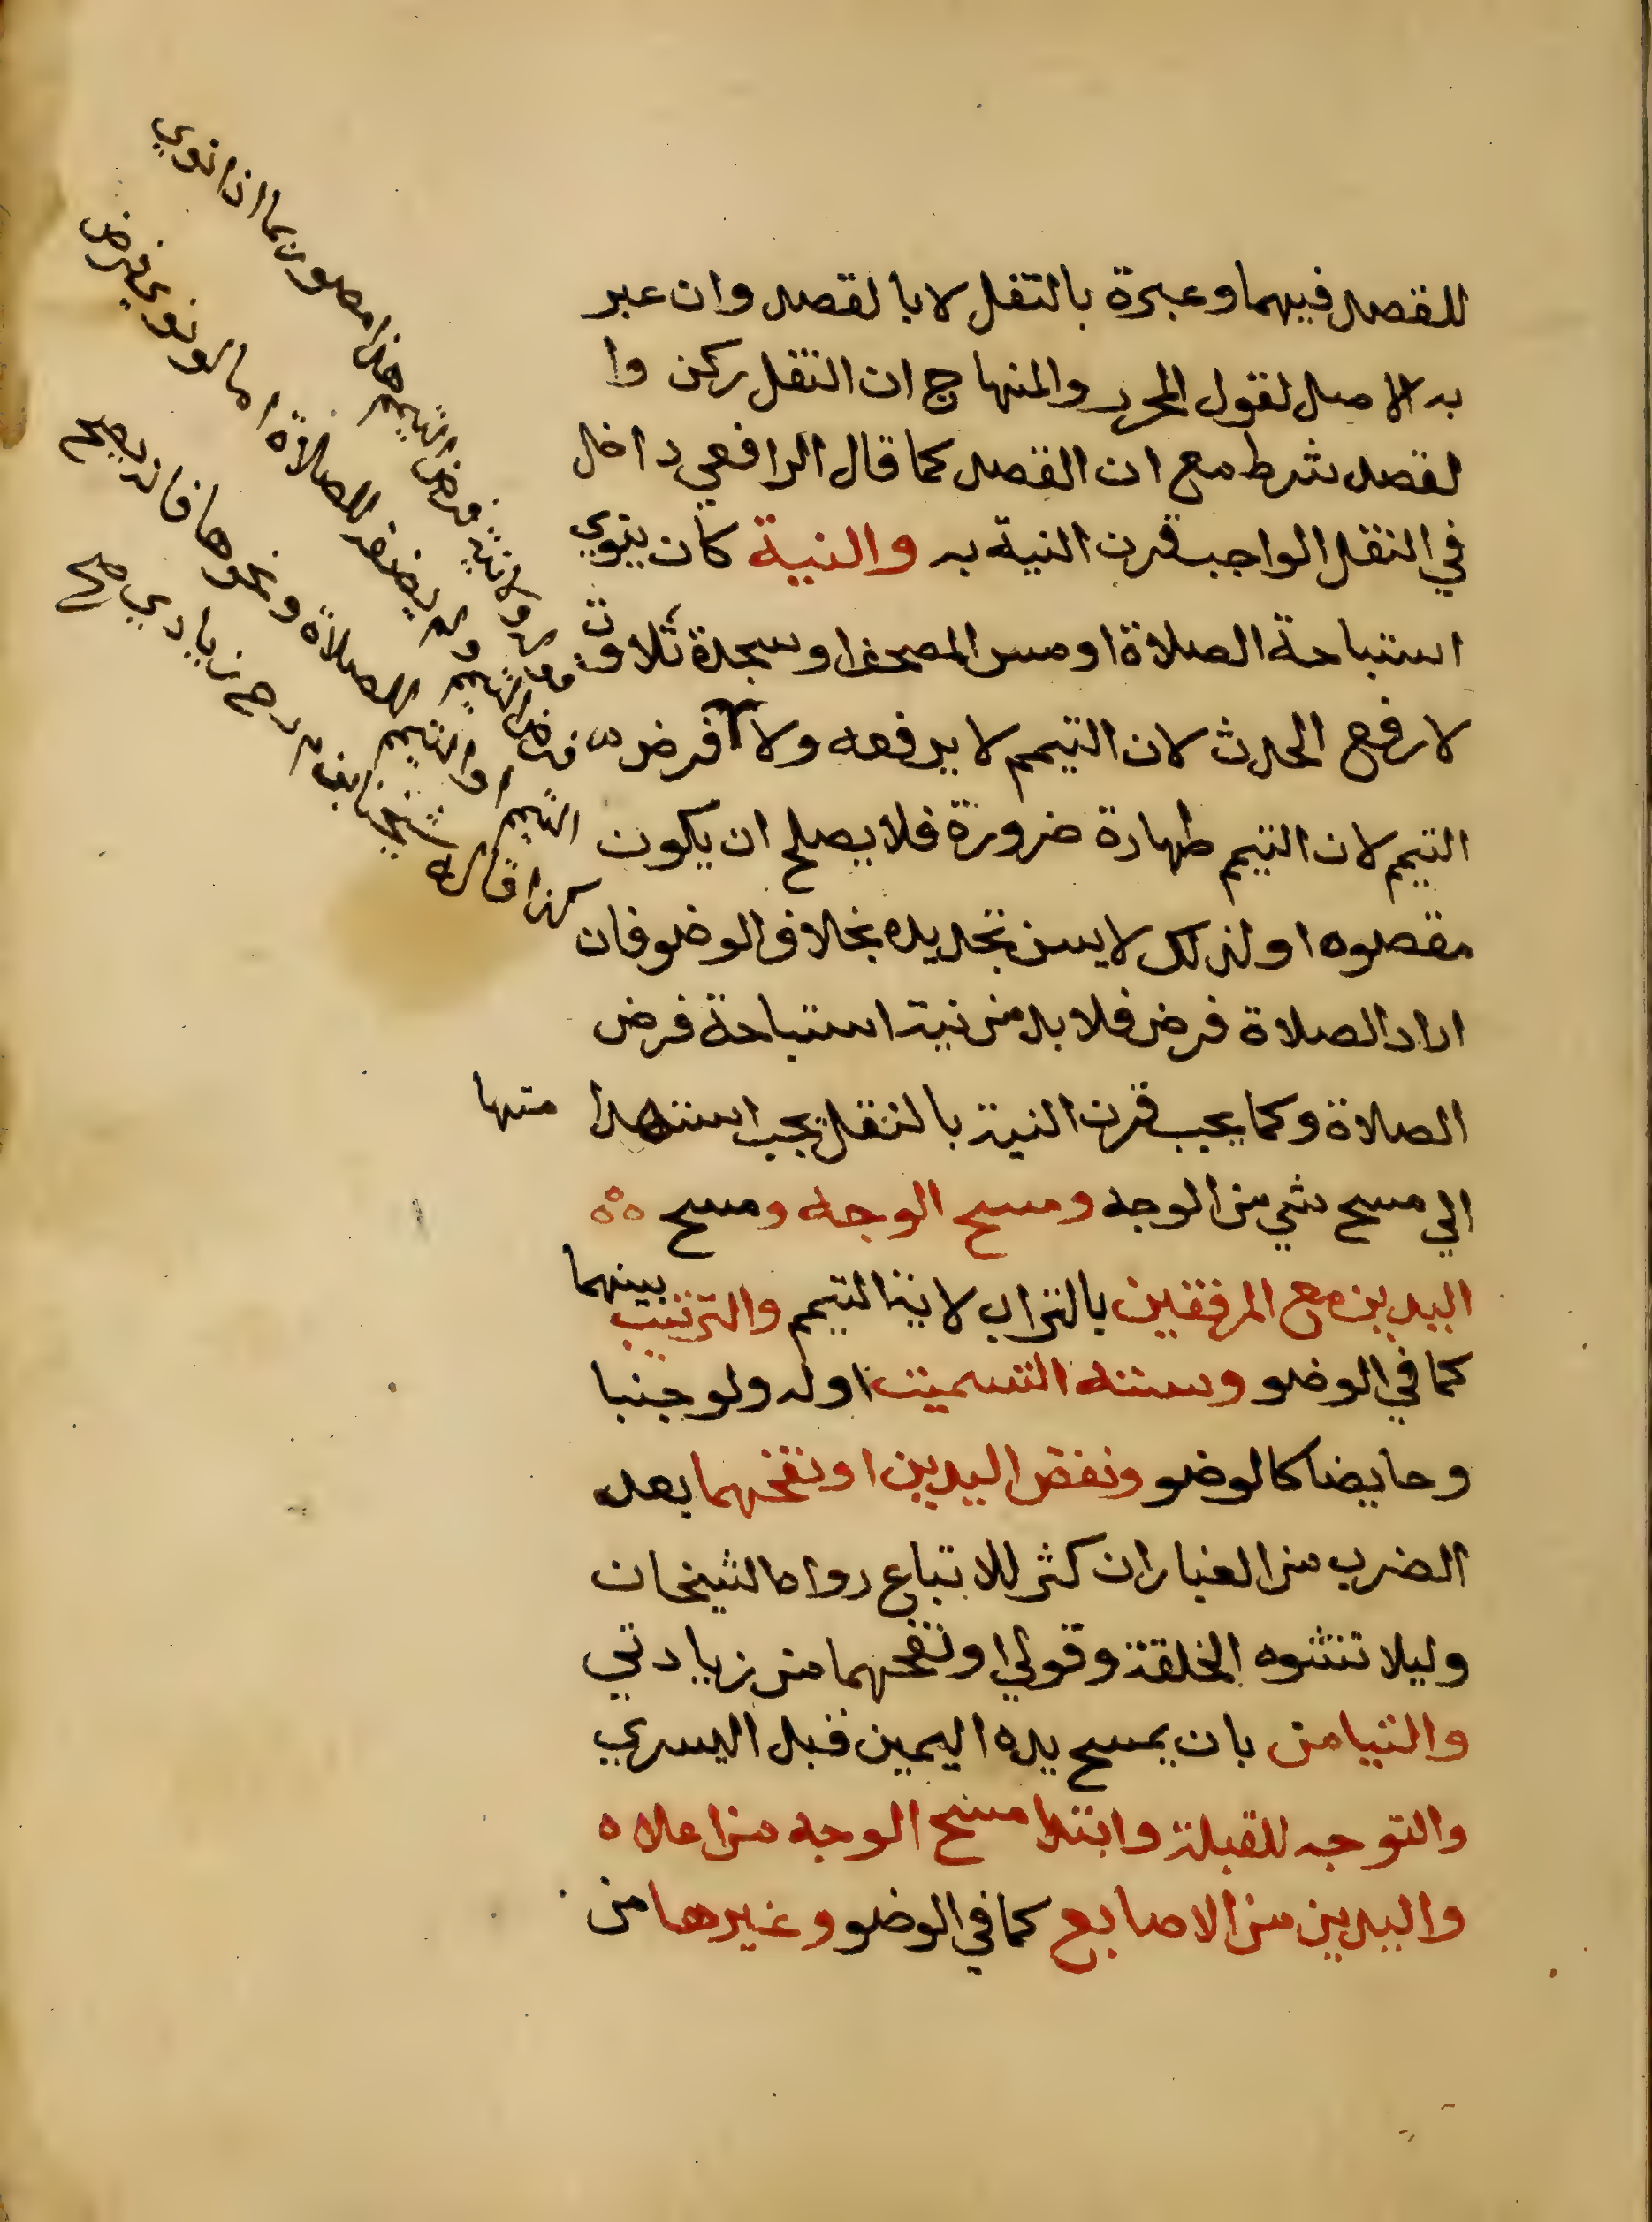 للقصد فيهما وعبرة بالنقل لا بالقصد وان عبر
به الاصل لقول المحرر والمنهاج ان النقل ركن وا
لقصد شرط مع ان القصد كما قال الرافعي داخل
في النقل الواجب قرن النية به والنية كان ينوي
استباحة الصلاة او مس المصحف او سجدة تلاوة
لا رفع الحدث لان التيمم لا يرفعه ولا فرض
التيمم لان التيمم طهارة ضرورة فلا يصلح ان يكون
مقصوه ا ولذلك لا يسن تجديده بخلاف الوضو فان
اراد الصلاة فرض فلا بد من نية استباحة فرض
الصلاة وكما يجب قرن النية بالنقل يجب استدامتها
الي مسح شي من الوجه ومسح الوجه ومسح
اليدين مع المرفقين بالتراب لاية التيمم والترتيب بينهما
كما في الوضو وسننه التسمية اوله ولو جنبا
وحايضا كالوضو ونفض اليدين او نفخهما بعد
الضرب من الغبار ان كثر للاتباع رواه الشيخان
وليلا تتشوه الخلقة وقولي او نفخهما من زيادتي
والتيامن بان يمسح يده اليمين قبل اليسري
والتوجه للقبلة وابتدا مسح الوجه من اعلاه
واليدين من الاصابع كما في الوضو وغيرها من
قوله ولا نية فرض التيمم هذا مصور بما اذا نوي
فرض التيمم ولم يضفه للصلاة اما لو نوي فرض
التيمم او التيمم للصلاة ونحوها فانه يصح
كذا قاله شيخنا زيادي صح